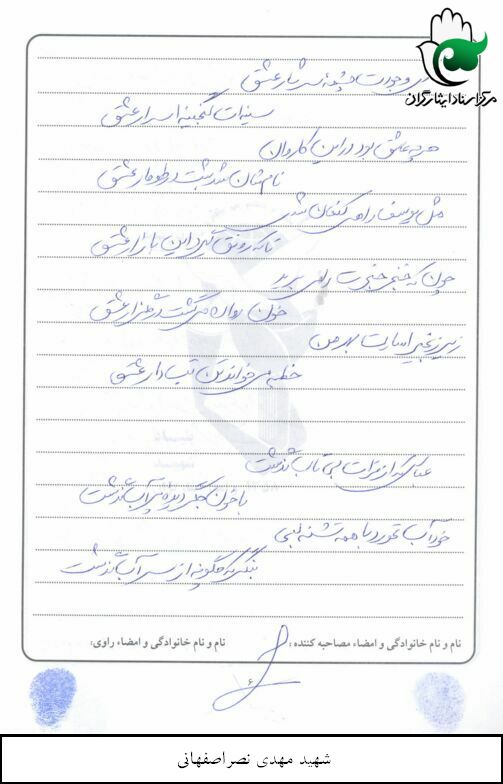 مرکز اسناد ایثارگران
ای وجودت چشمه سرشار عشق
سینه‌ات گنجینه اسرار عشق
هر چه عاشق بود در این کاروان
نامشان شد ثبت در طومار عشق
مثل یوسف راهی کنعان شدی
تا که رونق گیرد این بازار عشق
چون که خنجر حنجرت را می برید
خون روان می گشت در گلزار عشق
زیر زنجیر اسارت بهر من
خطبه می خواند تن تب دار عشق
عباس که از فرات بی تاب گذشت
با خون جگر ز دیده پر آب گذشت
خود آب نخورد با همه تشنه لبی
بنگر که چگونه از سر آب گذشت
نام و نام خانوادگی و امضاء مصاحبه کننده:
نام و نام خانوادگی و امضاء راوی:
شهید مهدی نصراصفهانی